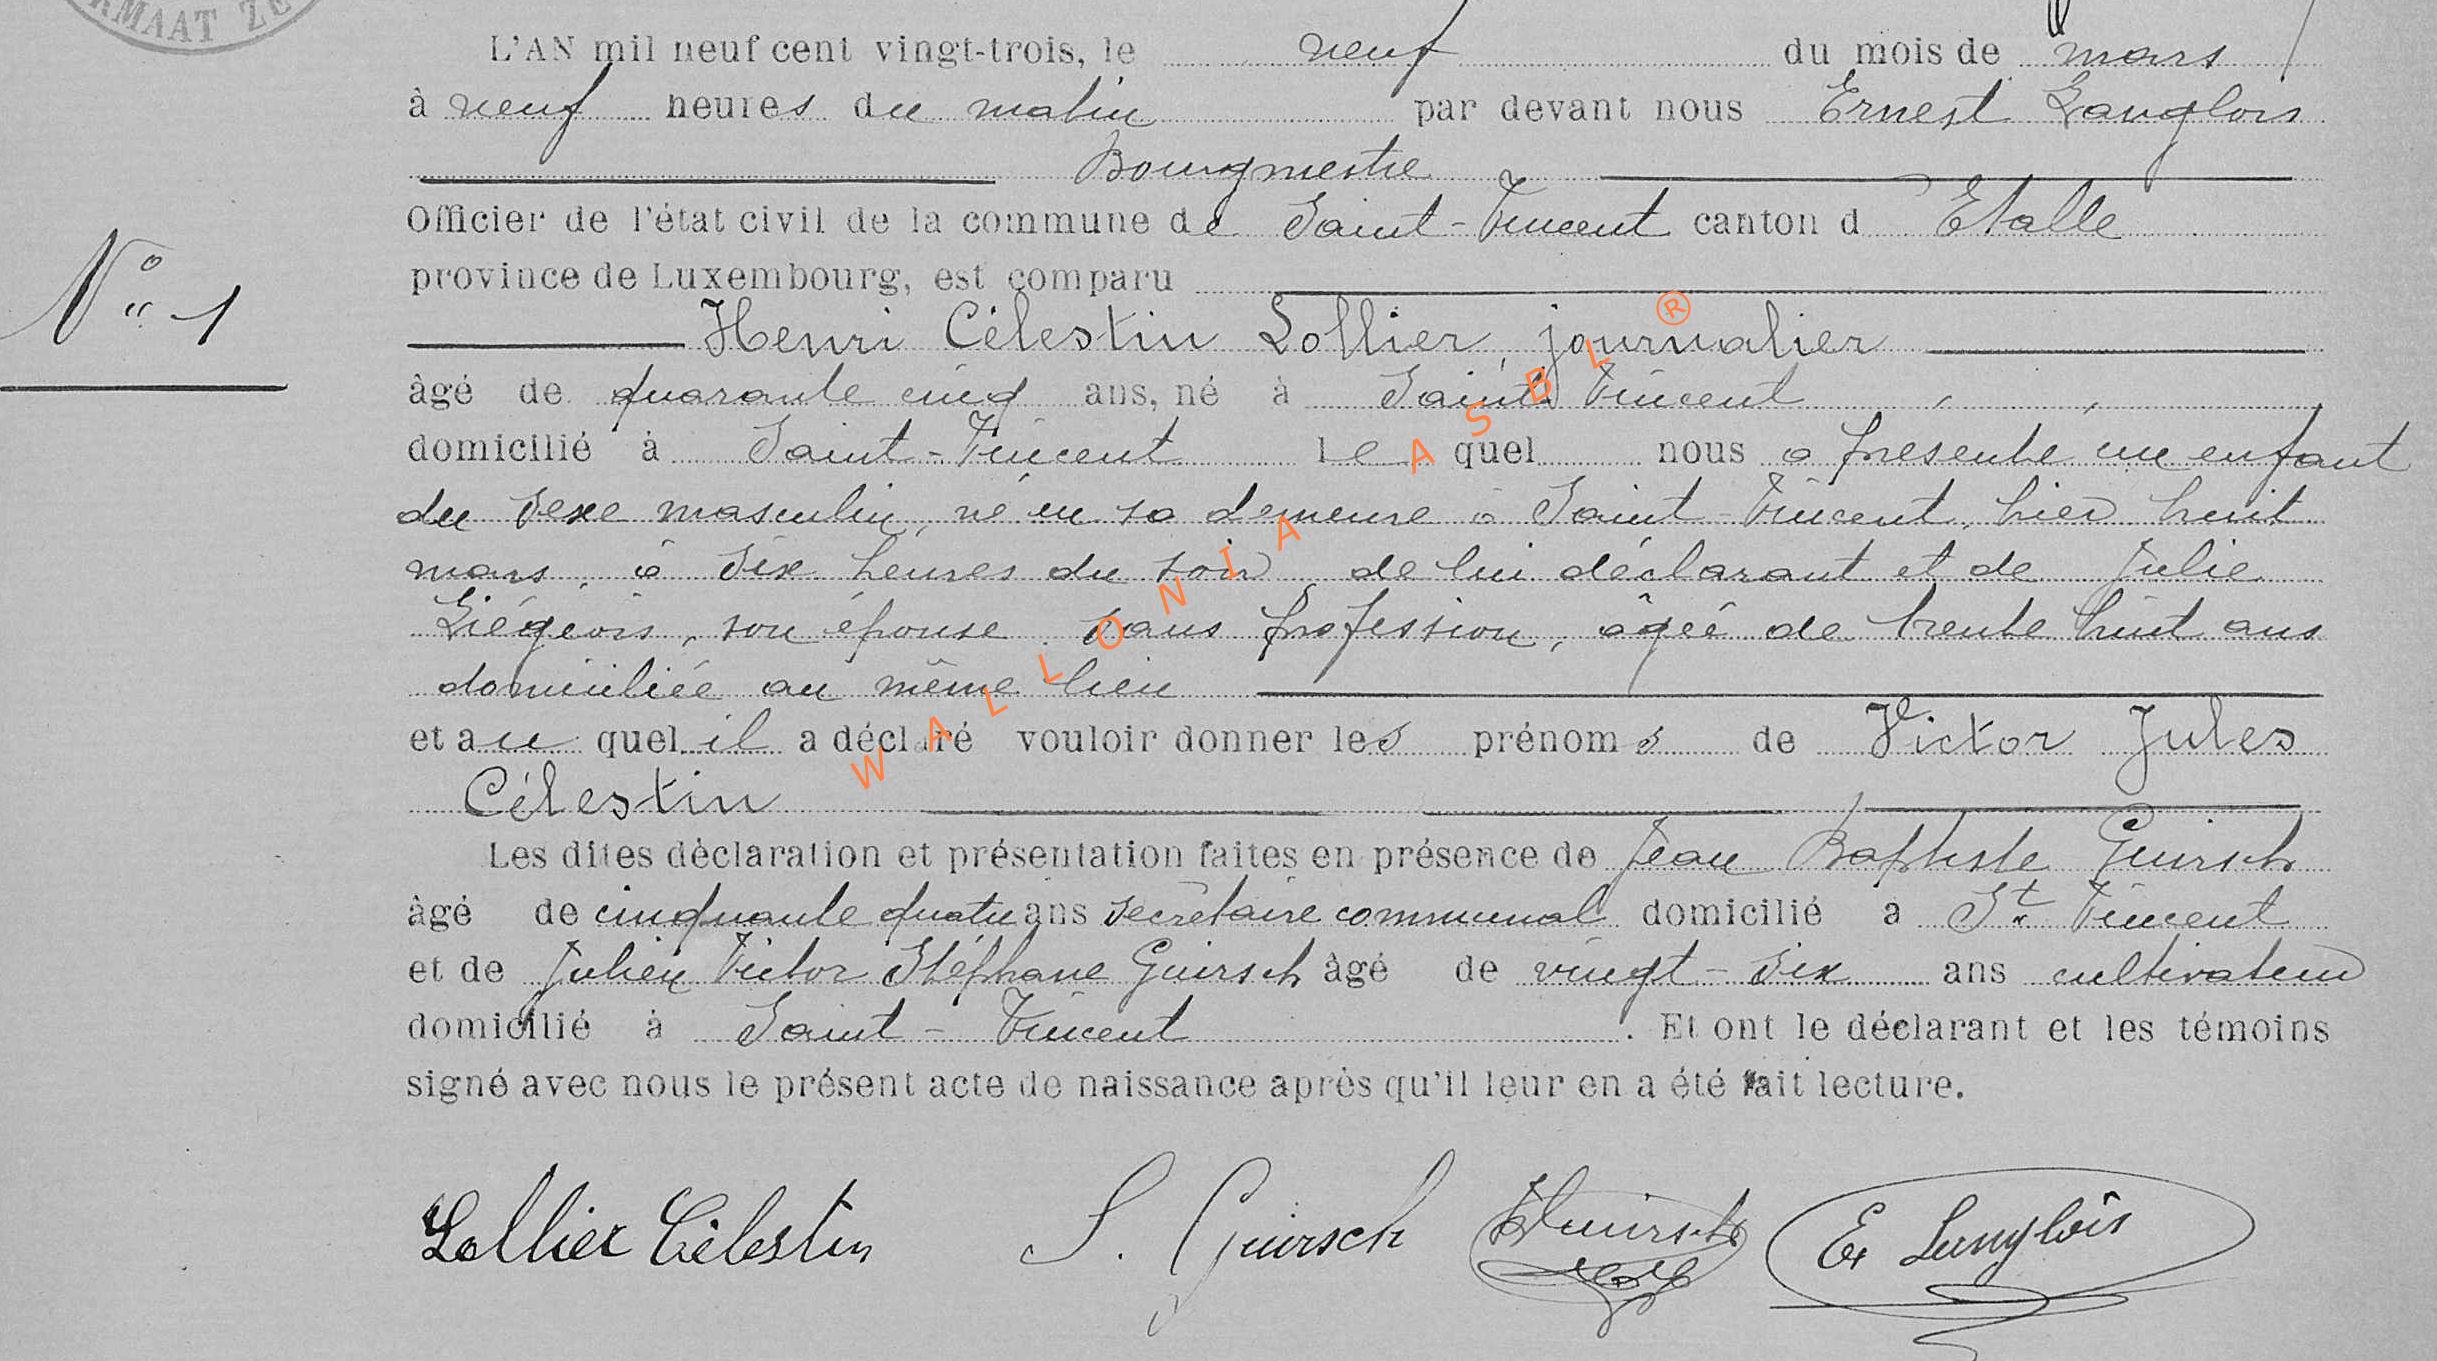 RMAAT ZE
L'AN mil neuf cent vingt-trois, le neuf du mois de mars
à neuf heures du matin par devant nous Ernest Langlois
Bourgmestre
Officier de l'état civil de la commune de Saint-Vincent canton d Etalle
province de Luxembourg, est comparu
N° 1
Henri Célestin Lollier, journalier
âgé de quarante cinq ans, né à Saint Vincent
domicilié à Saint-Vincent lequel nous a présenté un enfant
du sexe masculin, né en sa demeure à Saint-Vincent, hier huit
mars, à six heures du soir, de lui déclarant et de Julie
Liégeois, son épouse, sans profession, âgée de trente huit ans
domiciliée au même lieu
et au quel il a déclaré vouloir donner les prénoms de Victor Jules
Célestin
Les dites déclaration et présentation faites en présence de Jean Baptiste Guirsch
âgé de cinquante quatre ans secrétaire communal domicilié a St Vincent
et de Julien Victor Stéphane Guirsch âgé de vingt-six ans cultivateur
domicilié à Saint-Vincent. Et ont le déclarant et les témoins
signé avec nous le présent acte de naissance après qu'il leur en a été fait lecture.
Lollier Célestin S. Guirsch Guirsch E Langlois
WALLONIA ASBL ®